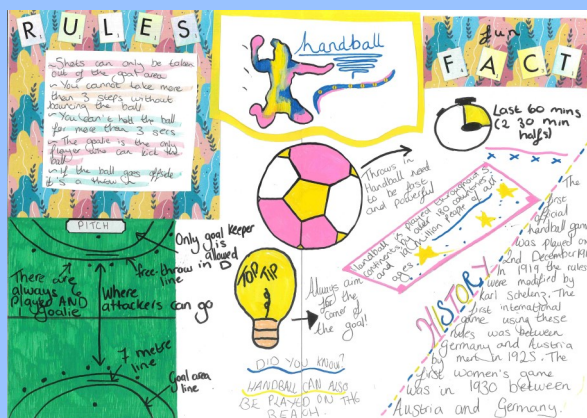 RULES
~ Shots can only be taken
out of the goal area
~ You cannot take more
than 3 steps without
bouncing the ball
~ You can't hold the ball
for more than 3 secs
~ The goalie is the only
player who can kick the
ball
~ If the ball goes offside
it's a throw
handball
fun
FACT
Last 60 mins
(2 30 min
halfs)
Throws in
Handball need
to be fast
and powerful
Handball is played throughout 5
continents by over 180 countries
and 19 million people of all
ages.
PITCH
Only goal keeper
is
allowed
in D
free-throw
line
There are
always 6
players AND
goalie
Where
attackers can go
7 metre
line
Goal area
line
TOP TIP
Always aim
for the
corner of
the goal!
DID YOU KNOW?
HANDBALL CAN ALSO
BE PLAYED ON THE
BEACH.
HISTORY
The
first
official
handball game
was played on
2nd December
In 1919 the rules
were modified by
Karl Schelenz. The
first international
game using these
rules was between
Germany and Austria
by men in 1925. The
first women's game
was in 1930 between
Austria and Germany.